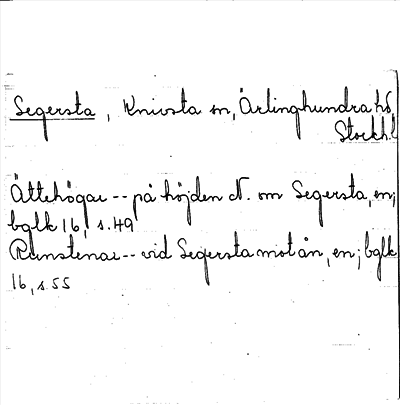 Segersta, Knivsta sn, Ärlinghundra hd,
Stockh.l
Ättehögar -- på höjden N. om Segersta, en;
bglk 16, s.49
Runstenar -- vid Segersta mot ån, en; bglk
16, s.55